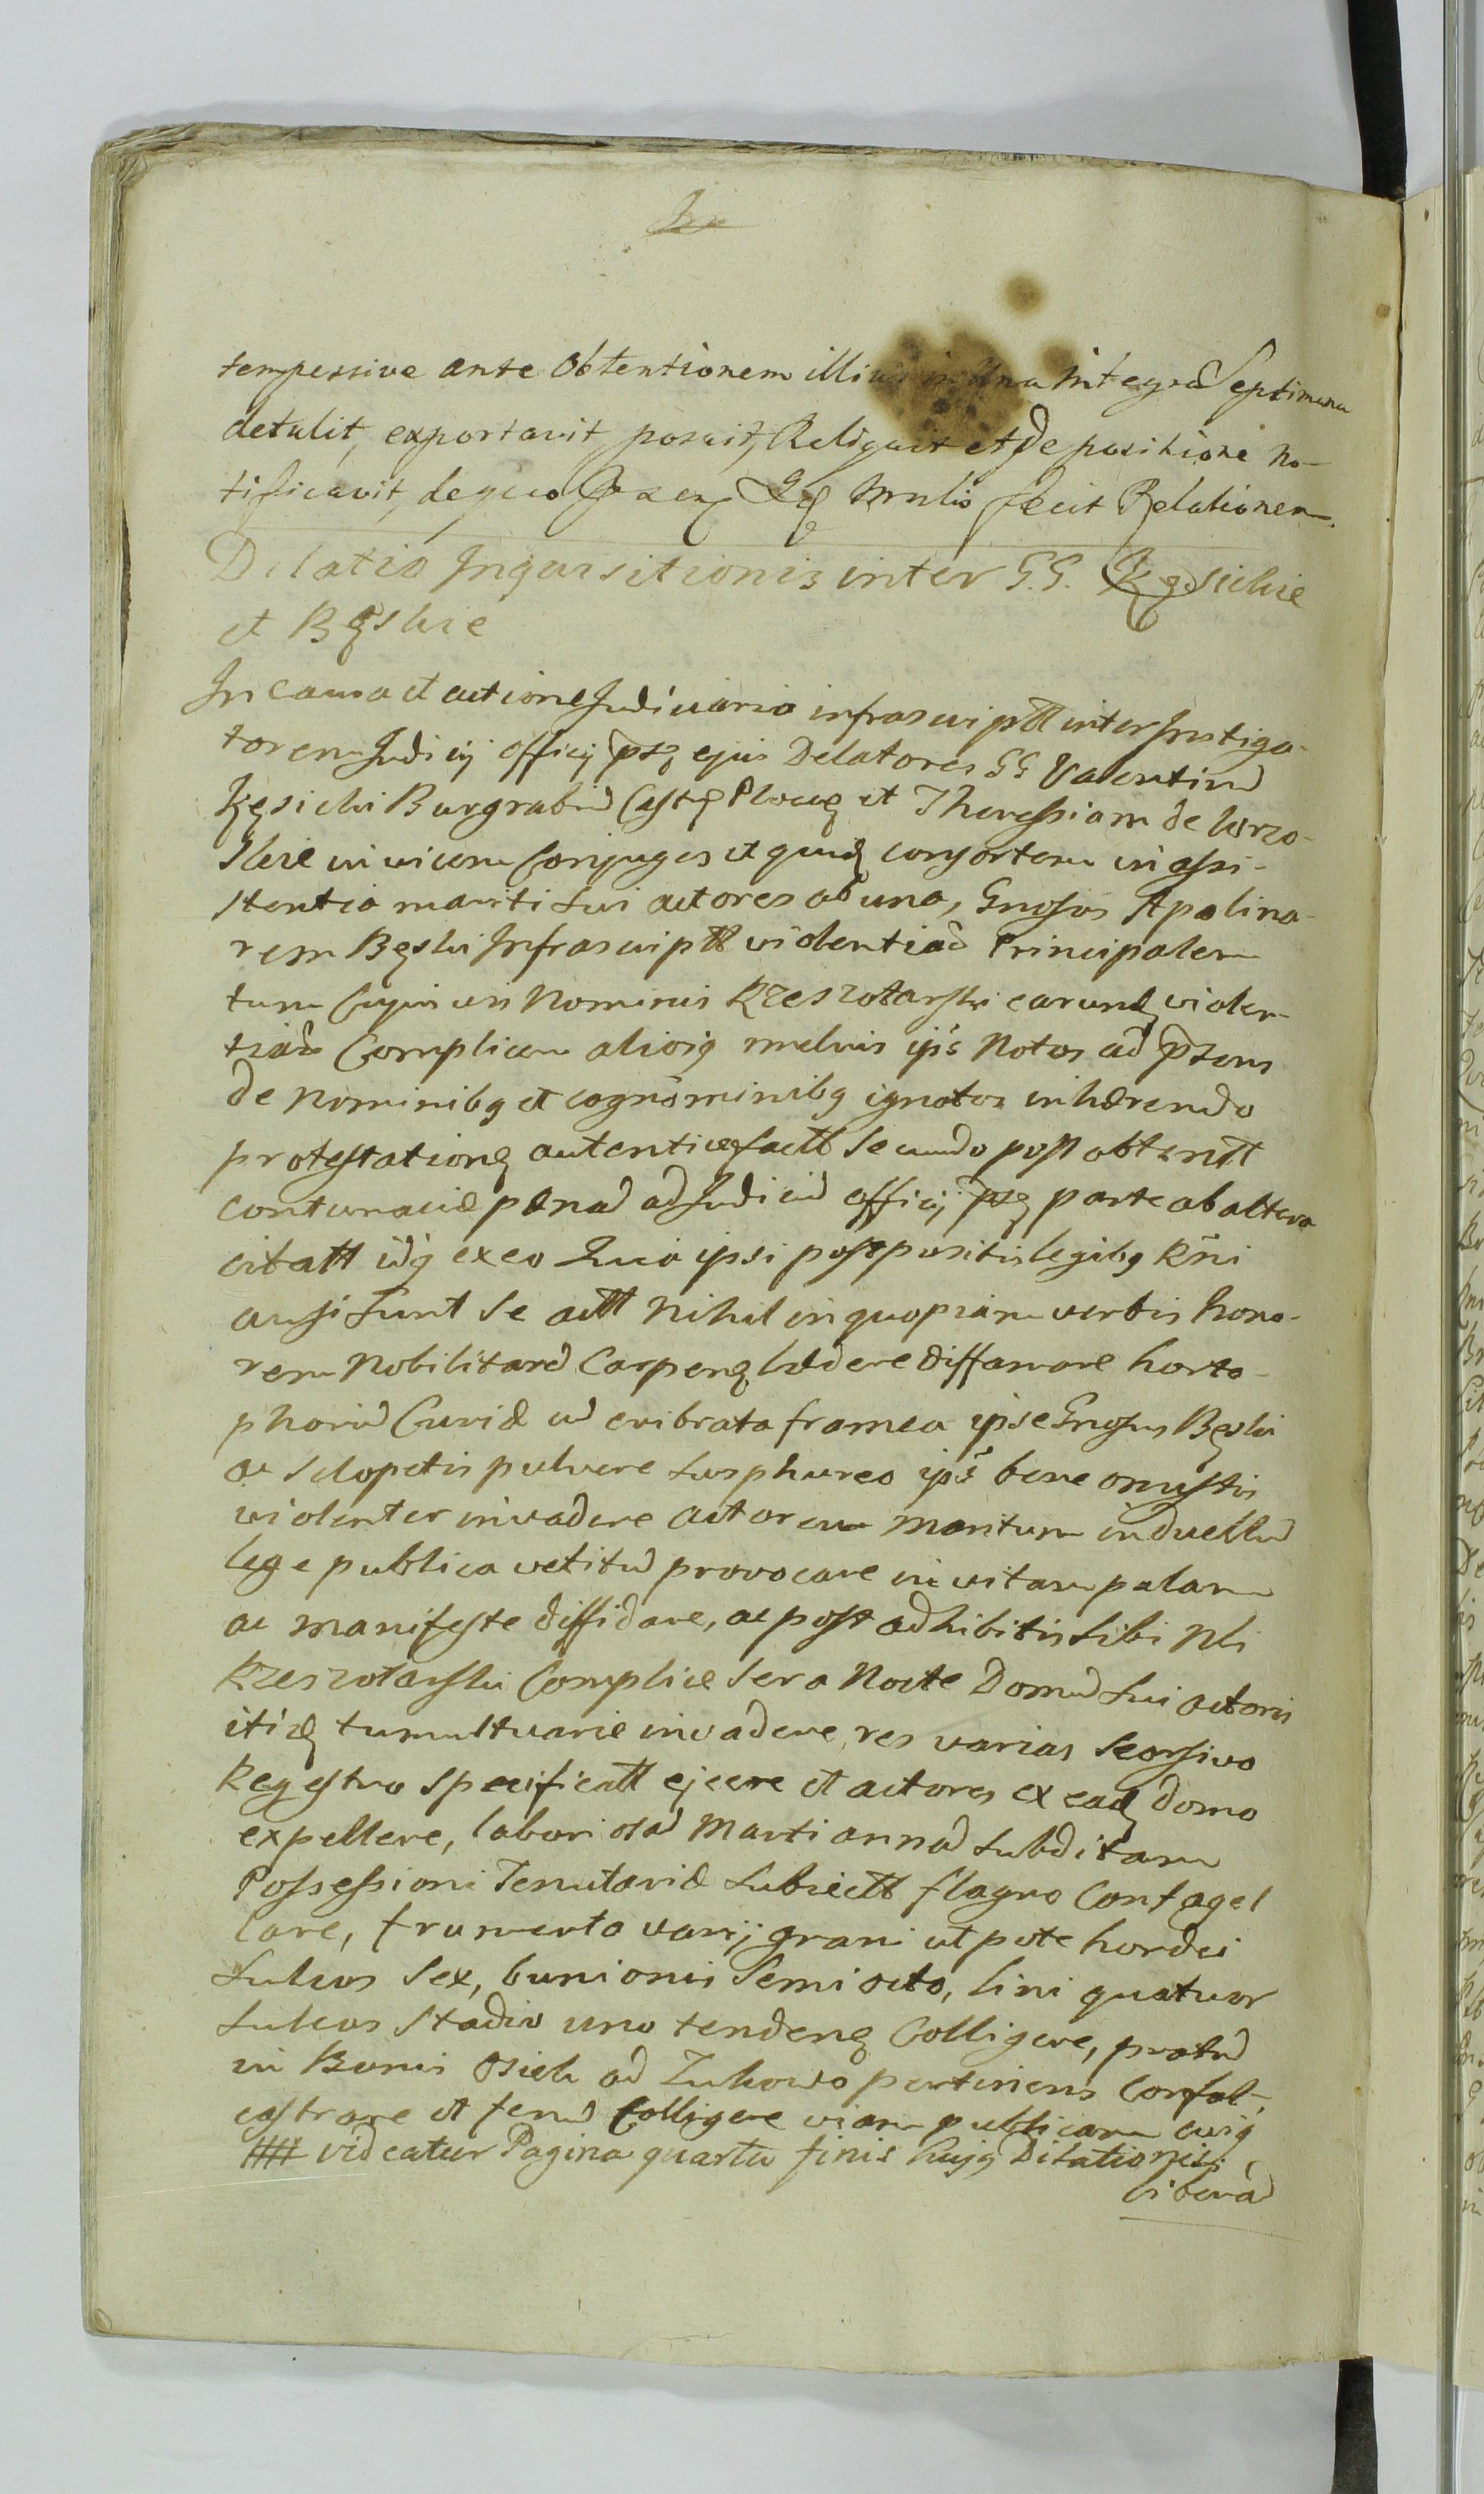 tempessive ante Obtentionem illius in Una integra Septimana
detulit, exportavit, posuit, Reliquit et de positione no-
tificavit, de quo fecit Relationem.
Dilatio Inquisitionis inter G.G. Kęsickie
et Bęskie
In causa et actione Judiciaria infrascriptt inter Instiga-
torem Judicij officij psę ejus Delatores GG Valentinũ
Kęsicki Burgrabiũ Castrę Plocę et Theressiam de Wrzo-
skie invicem Conjuges et quidę consortem in assi-
stentia mariti sui actores ab una, Gnosos Apolina-
rem Bęski Infrascriptt violentiaũ Principalem
tum Cujus vis Nominis Krzeszotarski earundę violen-
tiaũ Complicem aliosq melius ips̃ Notos ad
de Nominibq et cognõminibq ignotos inhærendo
protestationę autenticę factt Secundo post obtentt
contumaciæ pænaũ ad Judiciũ officij psę parte ab altera
citatt idq ex eo Quia ipsi postpositis legibq Rñi
ausi sunt Se actt Nihil in quopiam verbis hono-
rem Nobilitarẽ Carpenę lædere diffamare horto-
phoriũ Curiæ cũ evibrata framea ipse Gnosus Bęski
ac Sclopetis pulvere susphureo ips̃ bene onustis
violenter invadere actorem Maritum in duellũ
lege publica vetitũ provocare in vitam palam
ac manifeste diffidare, ac post adhibitis sibi Nli
Krzeszotarski Complice Sera Nocte Domũ sui actoris
itidę tumultuarie invadere, res varias Seorsivo
Regestro specificatt ejcere et actores ex eadę domo
expellere, laboriosaũ Martiannaũ subditam
Possessioni Tenutariæ subiectt flagro Conflagel
lare, frumenta varij grani ut pote hordei
sulcos Sex, bunionis Semi octo, lini quatuor
sulcos Stadio uno tendenę Colligere, pratũ
in Bonis Osiek ad Zukowo pertinens Confal-
castrare et fenũ Colligere viam publicam cuiq
videatur Pagina quarta finis hujq Dilationis.
liberaũ